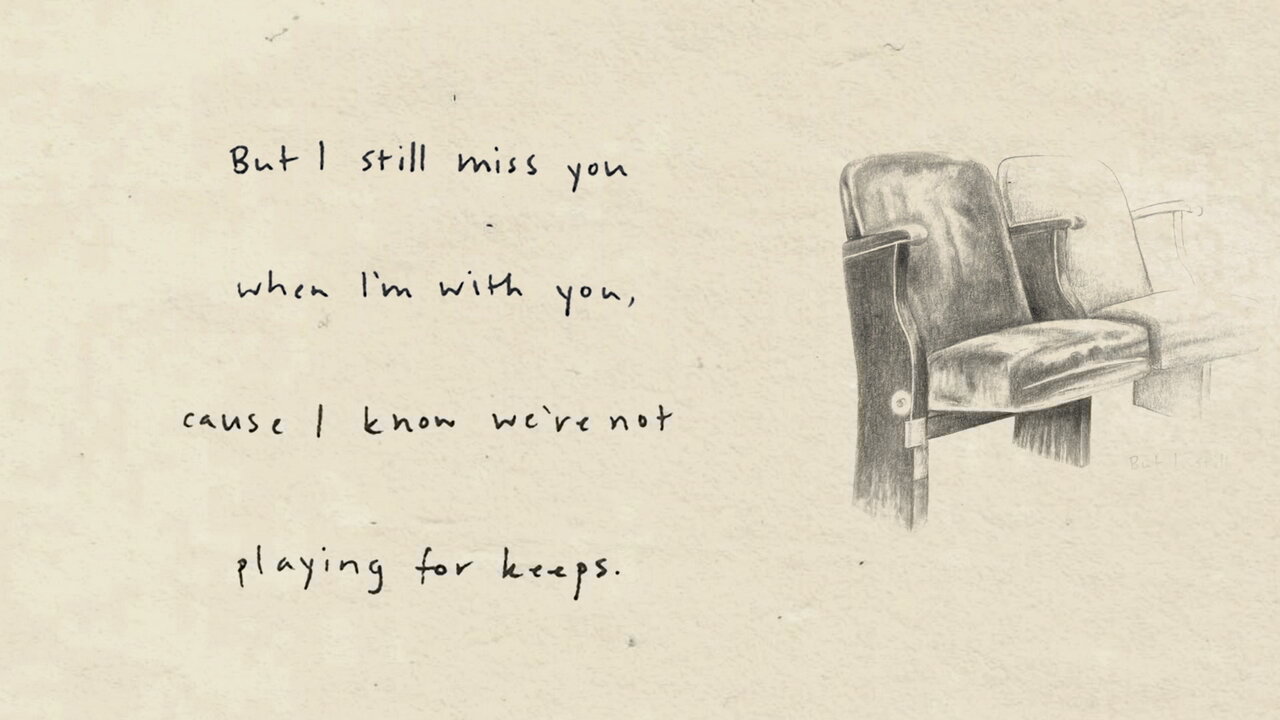 But I still miss you
when I'm with you,
cause I know we're not
playing for keeps.
But I still